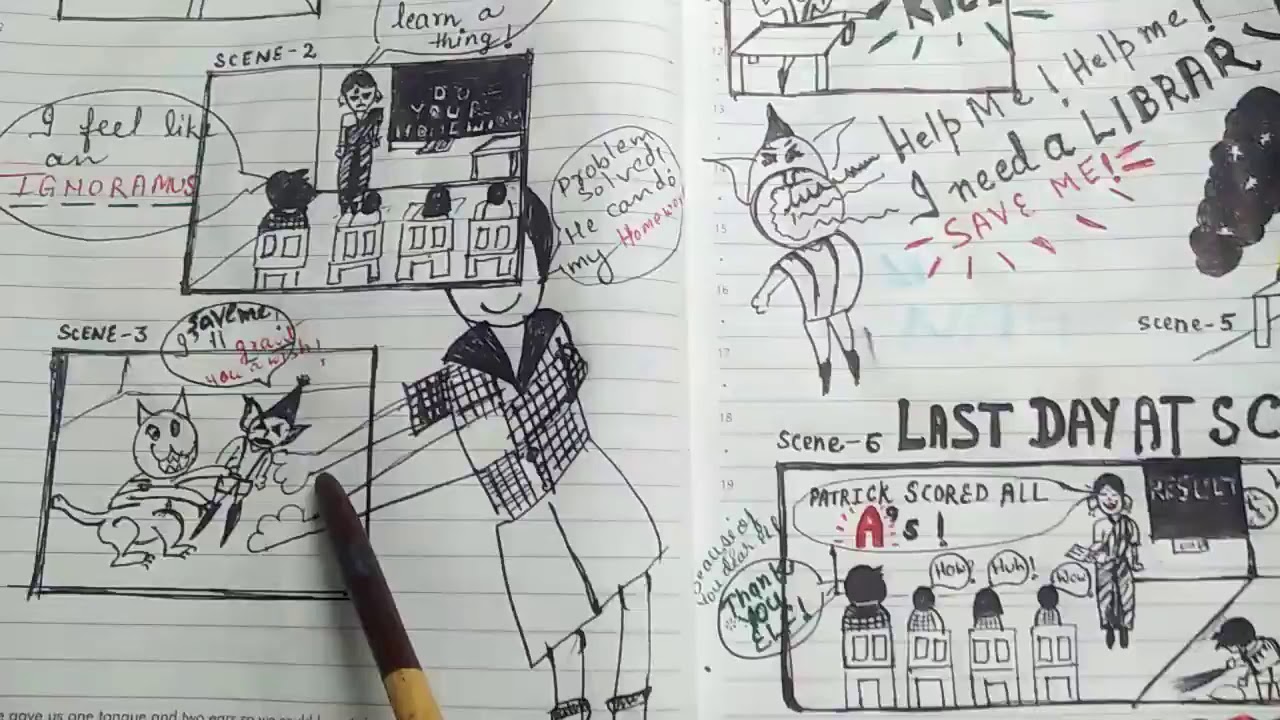 learn a
thing!
SCENE-2
DO
YOUR
HOMEWORK
I feel like
an
IGNORAMUS
Problem
Solved!
He can do
my Homework
SCENE-3
Save me,
I'll grant
you a wish!
Help Me! Help me!
I need a LIBRAR
SAVE ME!
scene-5
Scene-6 LAST DAY AT SC
PATRICK SCORED ALL
A's!
RESULT
How?
Huh!
Wow
Because of
you dear
Thank
you
ELF!
e gave us one tongue and two ears so we could